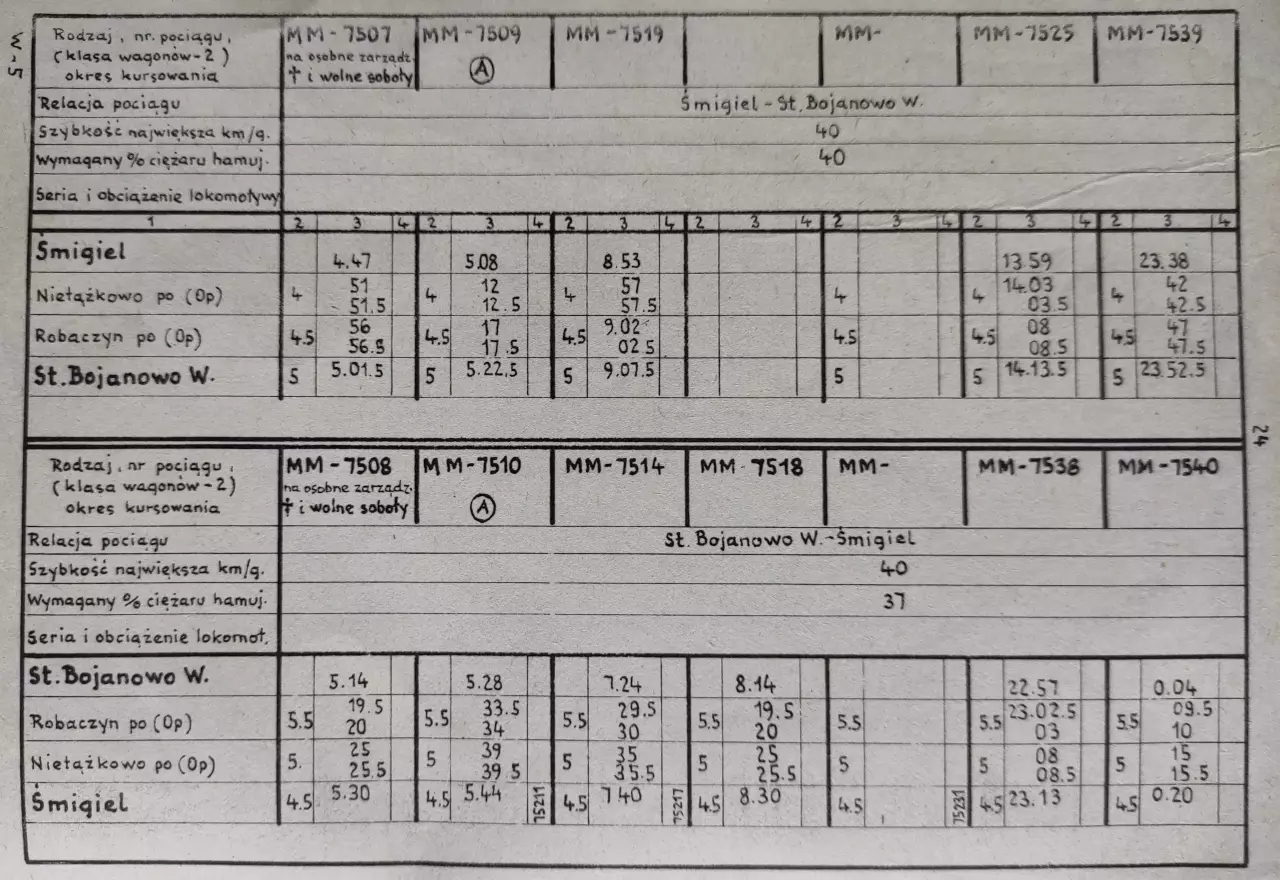 W-5
Rodzaj, nr. pociągu, MM-7507 MM-7509 MM-7519 MM- MM-7525 MM-7539
(klasa wagonów-2) na osobne zarządz.
okres kursowania † i wolne soboty A
Relacja pociągu Śmigiel - St. Bojanowo W.
Szybkość największa km/g. 40
Wymagany % ciężaru hamuj. 40
Seria i obciążenie lokomotywy
1 2 3 4 2 3 4 2 3 4 2 3 4 2 3 4 2 3 4 2 3 4
Śmigiel 4.47 5.08 8.53 13.59 23.38
51 12 57 14.03 42
Nietążkowo po (Op) 4 4 4 4 4 4
51.5 12.5 57.5 03.5 42.5
56 17 9.02 08 47
Robaczyn po (Op) 4.5 4.5 4.5 4.5 4.5 4.5
56.5 17.5 02.5 08.5 47.5
St. Bojanowo W. 5 5.01.5 5 5.22.5 5 9.07.5 5 5 14.13.5 5 23.52.5
24
Rodzaj, nr pociągu, MM-7508 MM-7510 MM-7514 MM-7518 MM- MM-7538 MM-7540
(klasa wagonów-2) na osobne zarządz.
okres kursowania † i wolne soboty A
Relacja pociągu St. Bojanowo W.-Śmigiel
Szybkość największa km/g. 40
Wymagany % ciężaru hamuj. 37
Seria i obciążenie lokomot.
St. Bojanowo W. 5.14 5.28 7.24 8.14 22.57 0.04
19.5 33.5 29.5 19.5 23.02.5 09.5
Robaczyn po (Op) 5.5 5.5 5.5 5.5 5.5 5.5 5.5
20 34 30 20 03 10
25 39 35 25 08 15
Nietążkowo po (Op) 5. 5 5 5 5 5 5
25.5 39.5 35.5 25.5 08.5 15.5
Śmigiel 4.5 5.30 4.5 5.44 75211 4.5 7.40 75217 4.5 8.30 4.5 75231 4.5 23.13 4.5 0.20